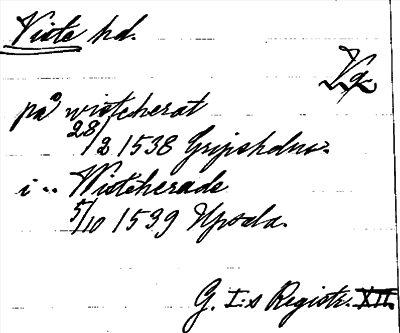 Viste hd.
Vg
på wisteherat
28/2 1538 Gripsholm.
i .. Wisteherade
5/10 1539 Upsala.
G. I:s Registr. XII.